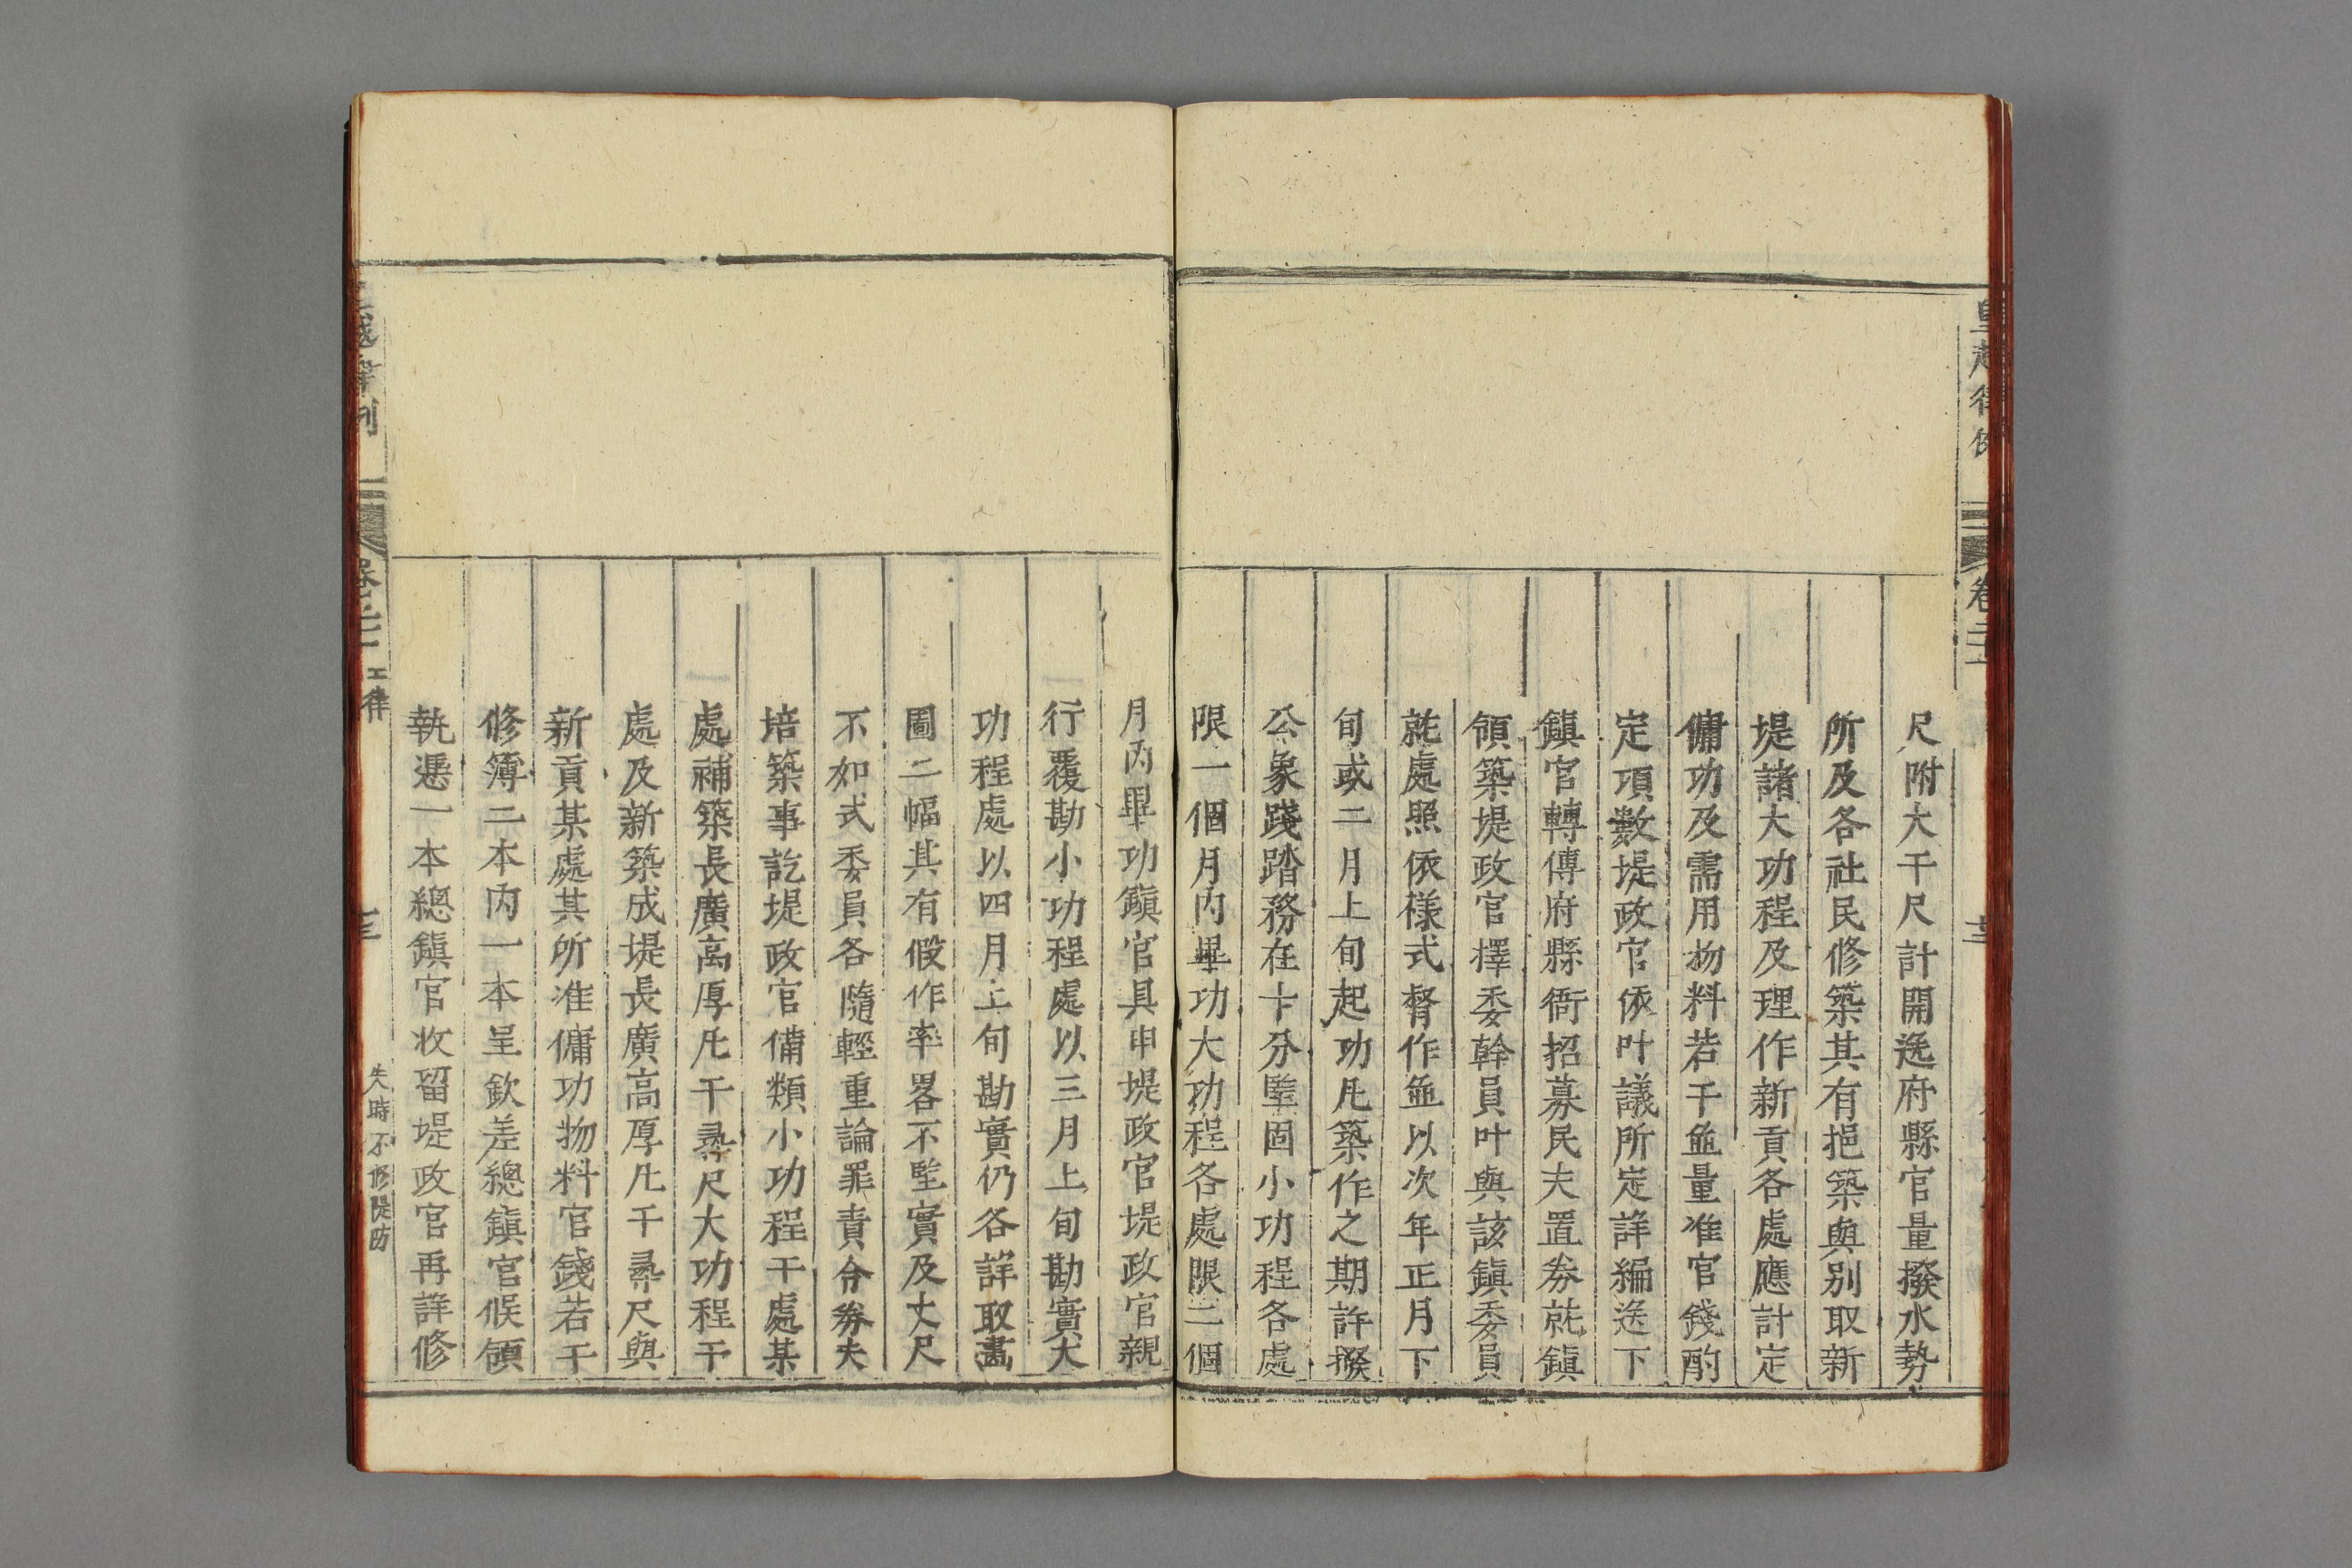 皇越律例
卷二十一
十三
尺附大干尺計開送府縣官量撥水勢
所及各社民修築其有挹築與别取新
堤諸大功程及理作新貢各處應計定
傭功及需用物料若干並量准官錢酌
定項數堤政官依叶議所定詳編送下
鎮官轉傳府縣衙招募民夫置券就鎮
領築堤政官擇委幹員叶與該鎮委員
就處照依樣式督作並以次年正月下
旬或二月上旬起功凡築作之期許撥
公象踐踏務在十分堅固小功程各處
限一個月内畢功大功程各處限三個
月内畢功鎮官具申堤政官堤政官親
行覆勘小功程處以三月上旬勘實大
功程處以四月上旬勘實仍各詳取畫
圖二幅其有假作率畧不堅實及丈尺
不如式委員各隨輕重論罪責令券夫
培築事訖堤政官備類小功程干處某
處補築長廣高厚凡干尋尺大功程干
處及新築成堤長廣高厚凡干尋尺與
新貢某處其所准傭功物料官錢若干
修簿二本内一本呈欽差總鎮官候領
執憑一本總鎮官收留堤政官再詳修
皇越律例
卷二十一
工律
十三
失時不修隄防